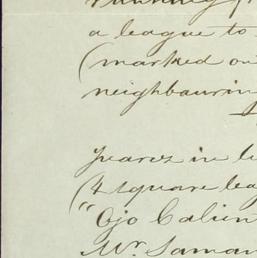 running
a league to
(marked on
neighbourin
Juarez in l
(4 square lea
"Ojo Calien
Mr. Saman